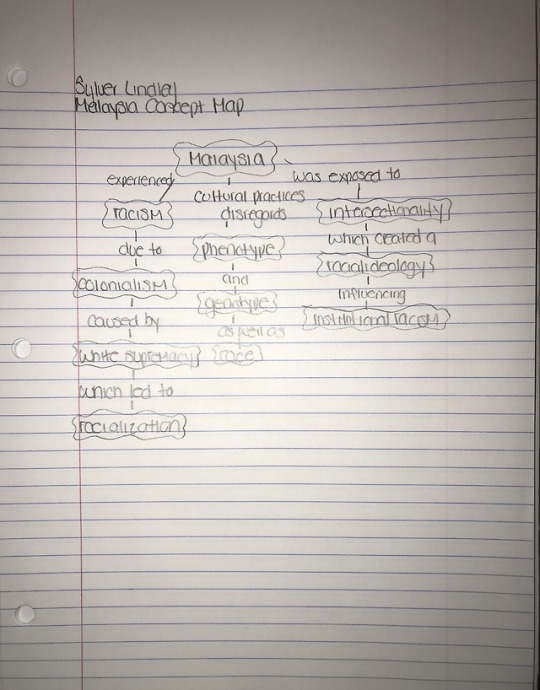 Sylver Lindley
Malaysia Concept Map
Malaysia
experienced
racism
due to
colonialism
caused by
white supremacy
which led to
racialization
cultural practices
disregards
phenotype
and
genotype
as well as
race
was exposed to
intersectionality
which created a
racial ideology
influencing
institutional racism